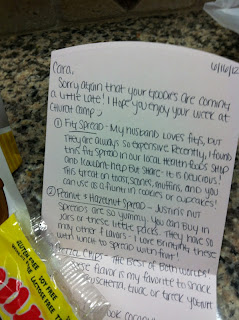 6/16/12
Cara,
Sorry again that your goodies are coming
a little late! I hope you enjoy your week at
church camp :)
① Fig Spread - My husband loves figs, but
they are always so expensive. Recently, I found
this fig spread in our local health foods shop
and I couldn't help but share - it is delicious!
This great on toast, scones, muffins, and you
can use as a filling in cookies or cupcakes!
② Peanut + Hazelnut Spread - Justin's nut
spreads are so yummy. You can buy in
jars or these little packs. They have so
many other flavors - I love bringing these
with lunch to spread with fruit!
Chips - The Best of Both Worlds!
flavor is my favorite to snack
bruschetta, tzatziki or Greek yogurt
GLUTEN FREE
SOY FREE
LACTOSE FREE